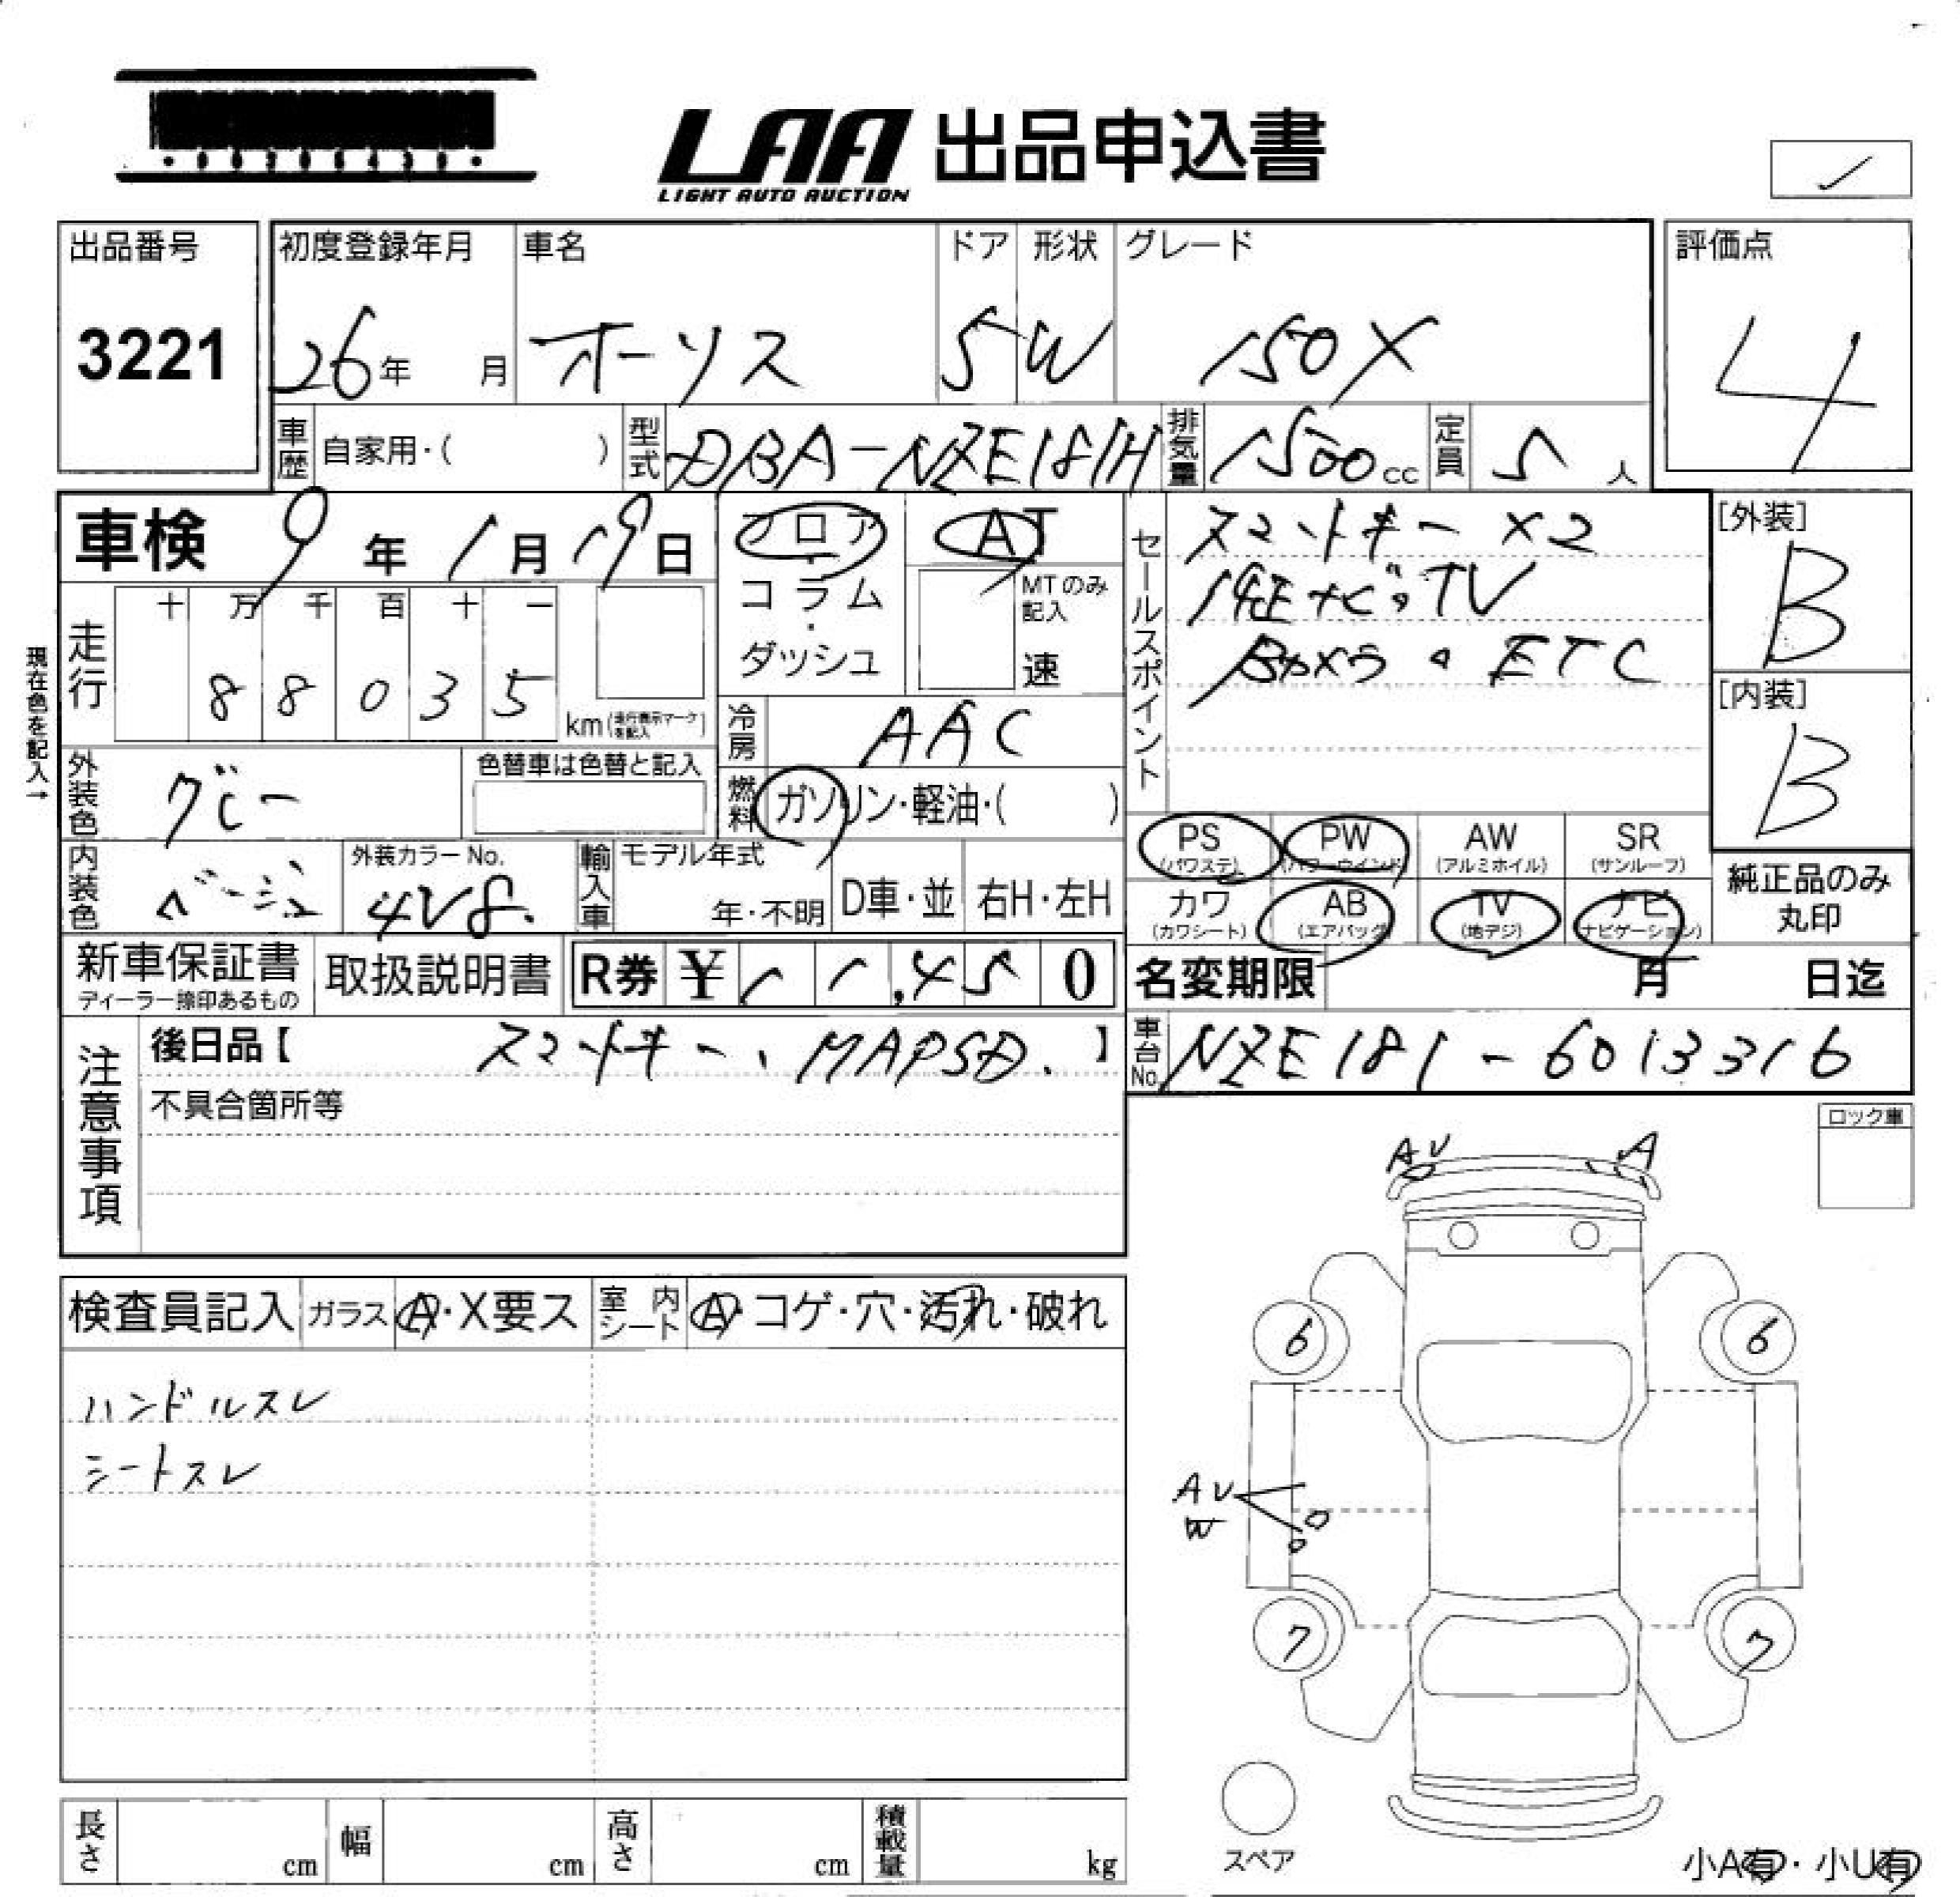 LAA 出品申込書
LIGHT AUTO AUCTION
✓
出品番号
3221
初度登録年月
26年 月
車名
オーリス
ドア
5
形状
W
グレード
150X
評価点
4
車歴
自家用・( )
型式
DBA-NZE181H
排気量
1500cc
定員
5人
車検 9年 1月 19日
フロア・コラム・ダッシュ
AT
MTのみ記入
速
セールスポイント
スマートキー X2
純正ナビ。TV
Bカメラ。ETC
[外装]
B
[内装]
B
現在色を記入→
走行
十 万 千 百 十 一
8 8 0 3 5
km(走行表示マークを記入)
冷房
AAC
外装色
グレー
色替車は色替と記入
燃料
ガソリン・軽油・( )
内装色
ベージュ
外装カラーNo.
4V8.
輸入車
モデル年式
年・不明
D車・並
右H・左H
PS
(パワステ)
PW
(パワーウインド)
AW
(アルミホイル)
SR
(サンルーフ)
カワ
(カワシート)
AB
(エアバッグ)
TV
(地デジ)
ナビ
(ナビゲーション)
純正品のみ
丸印
新車保証書
ディーラー捺印あるもの
取扱説明書
R券 ¥ 1 1,4 5 0
名変期限 月 日迄
注意事項
後日品【 スマートキー、MAPSD. 】
不具合箇所等
車台No.
NZE181-6013316
ロック車
AU
A
検査員記入
ガラス
A・X要ス
室内シート
A・コゲ・穴・汚れ・破れ
ハンドルスレ
シートスレ
6
6
AU
W
7
7
スペア
長さ cm
幅 cm
高さ cm
積載量 kg
小A有・小U有